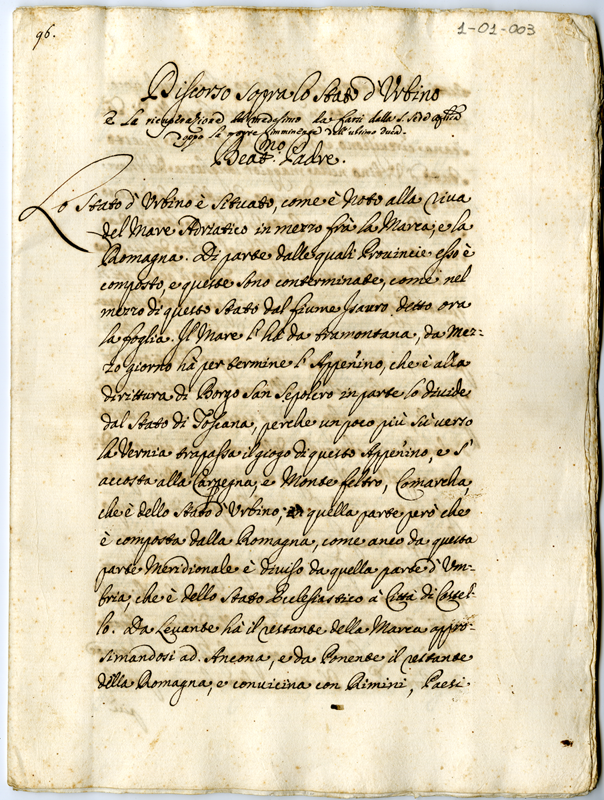 96.
1-01-003
Discorso sopra lo Stato d'Urbino
E la ricuperatione del medesimo da farsi dalla S. Sede Apstca
doppo la morte imminente dell'ultimo Duca.
Beat.mo Padre.
Lo Stato d'Urbino è situato, come è noto alla riva
del Mare Adriatico in mezzo frà la Marca, e la
Romagna. Di parte dalle quali Provincie esso è
composto, e queste sono conterminate, come nel
mezzo di questo Stato dal fiume Isauro detto ora
la foglia. Il Mare l'hà da tramontana, da Mez-
zo giorno hà per termine l'Appenino, che è alla
dirittura di Borgo San Sepolcro in parte lo divide
dal Stato di Toscana, perche un poco più sù verso
la Vernia trapassa il giogo di questo Appenino, e s'
accosta alla Carpegna, e Monte feltro, Comarcha,
che è dello Stato d'Urbino, quella parte però che
è composta dalla Romagna, come anco da questa
parte Meridionale è diviso da quella parte d'Um-
bria, che è dello Stato Eclesiastico à Città di Castel-
lo. Da Levante hà il restante della Marca appros-
simandosi ad Ancona, e da Ponente il restante
della Romagna, e convicina con Rimini, Paesi